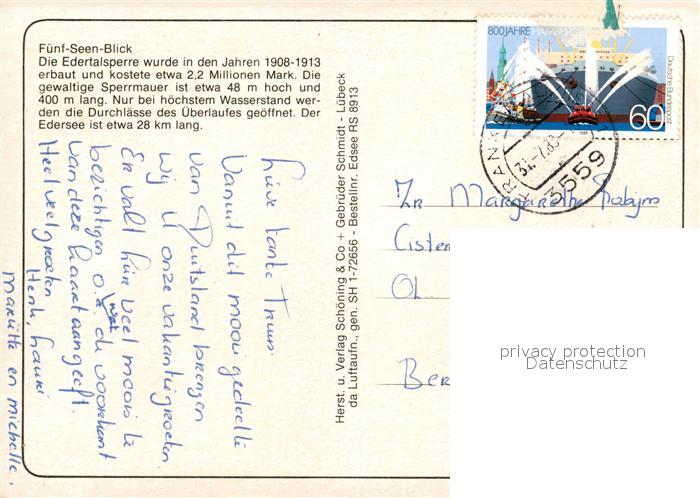 Fünf-Seen-Blick
Die Edertalsperre wurde in den Jahren 1908-1913
erbaut und kostete etwa 2,2 Millionen Mark. Die
gewaltige Sperrmauer ist etwa 48 m hoch und
400 m lang. Nur bei höchstem Wasserstand wer-
den die Durchlässe des Überlaufes geöffnet. Der
Edersee ist etwa 28 km lang.
Lieve tante Truus
Vanuit dit mooie gedeelte
van Duitsland brengen
wij U onze vakantiegroeten.
Er valt hier veel moois te
bezichtigen o.a. wat de voorkant
van deze kaart aangeeft.
Heel veel groeten
Henk,
Mariëtte en Michelle.
Herst. u. Verlag Schöning & Co + Gebrüder Schmidt - Lübeck
da Luftaufn., gen. SH 1-72656 - Bestellnr. Edsee RS 8913
800 JAHRE
Deutsche Bundespost
60
3559
Margaretha
Cister
Ber
privacy protection
Datenschutz